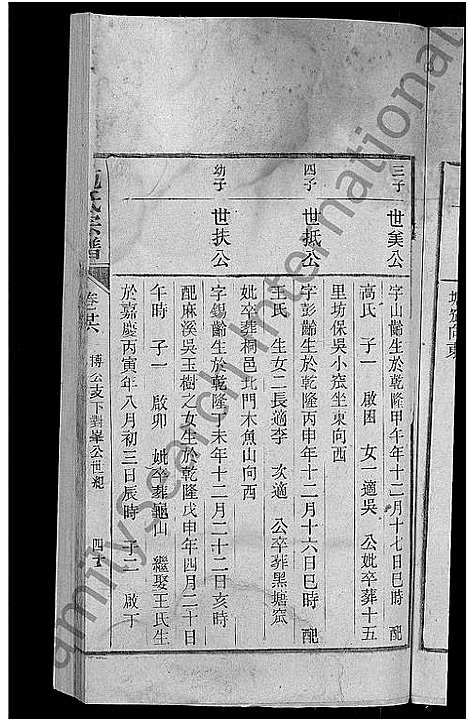 三子
世奚公
字山齡生於乾隆甲午年十二月十七日巳時 配
高氏 子一 啟困 女一適吳 公妣卒葬十五
里坊保吳小窊坐東向西
四子
世抵公
字彭齡生於乾隆丙申年十二月十六日巳時 配
王氏 生女二長適李 次適 公卒葬黑塘窊
妣卒葬桐邑北門木魚山向西
幼子
世扶公
字錫齡生於乾隆丁未年十二月二十二日亥時
配麻溪吳玉樹之女生於乾隆戊申年四月二十日
午時 子一 啟卯 妣卒葬龜山 繼娶王氏生
於嘉慶丙寅年八月初三日辰時 子二 啟丁
氏宗譜
卷廿六
博公支下對峯公世紀
向東
FamilySearch International